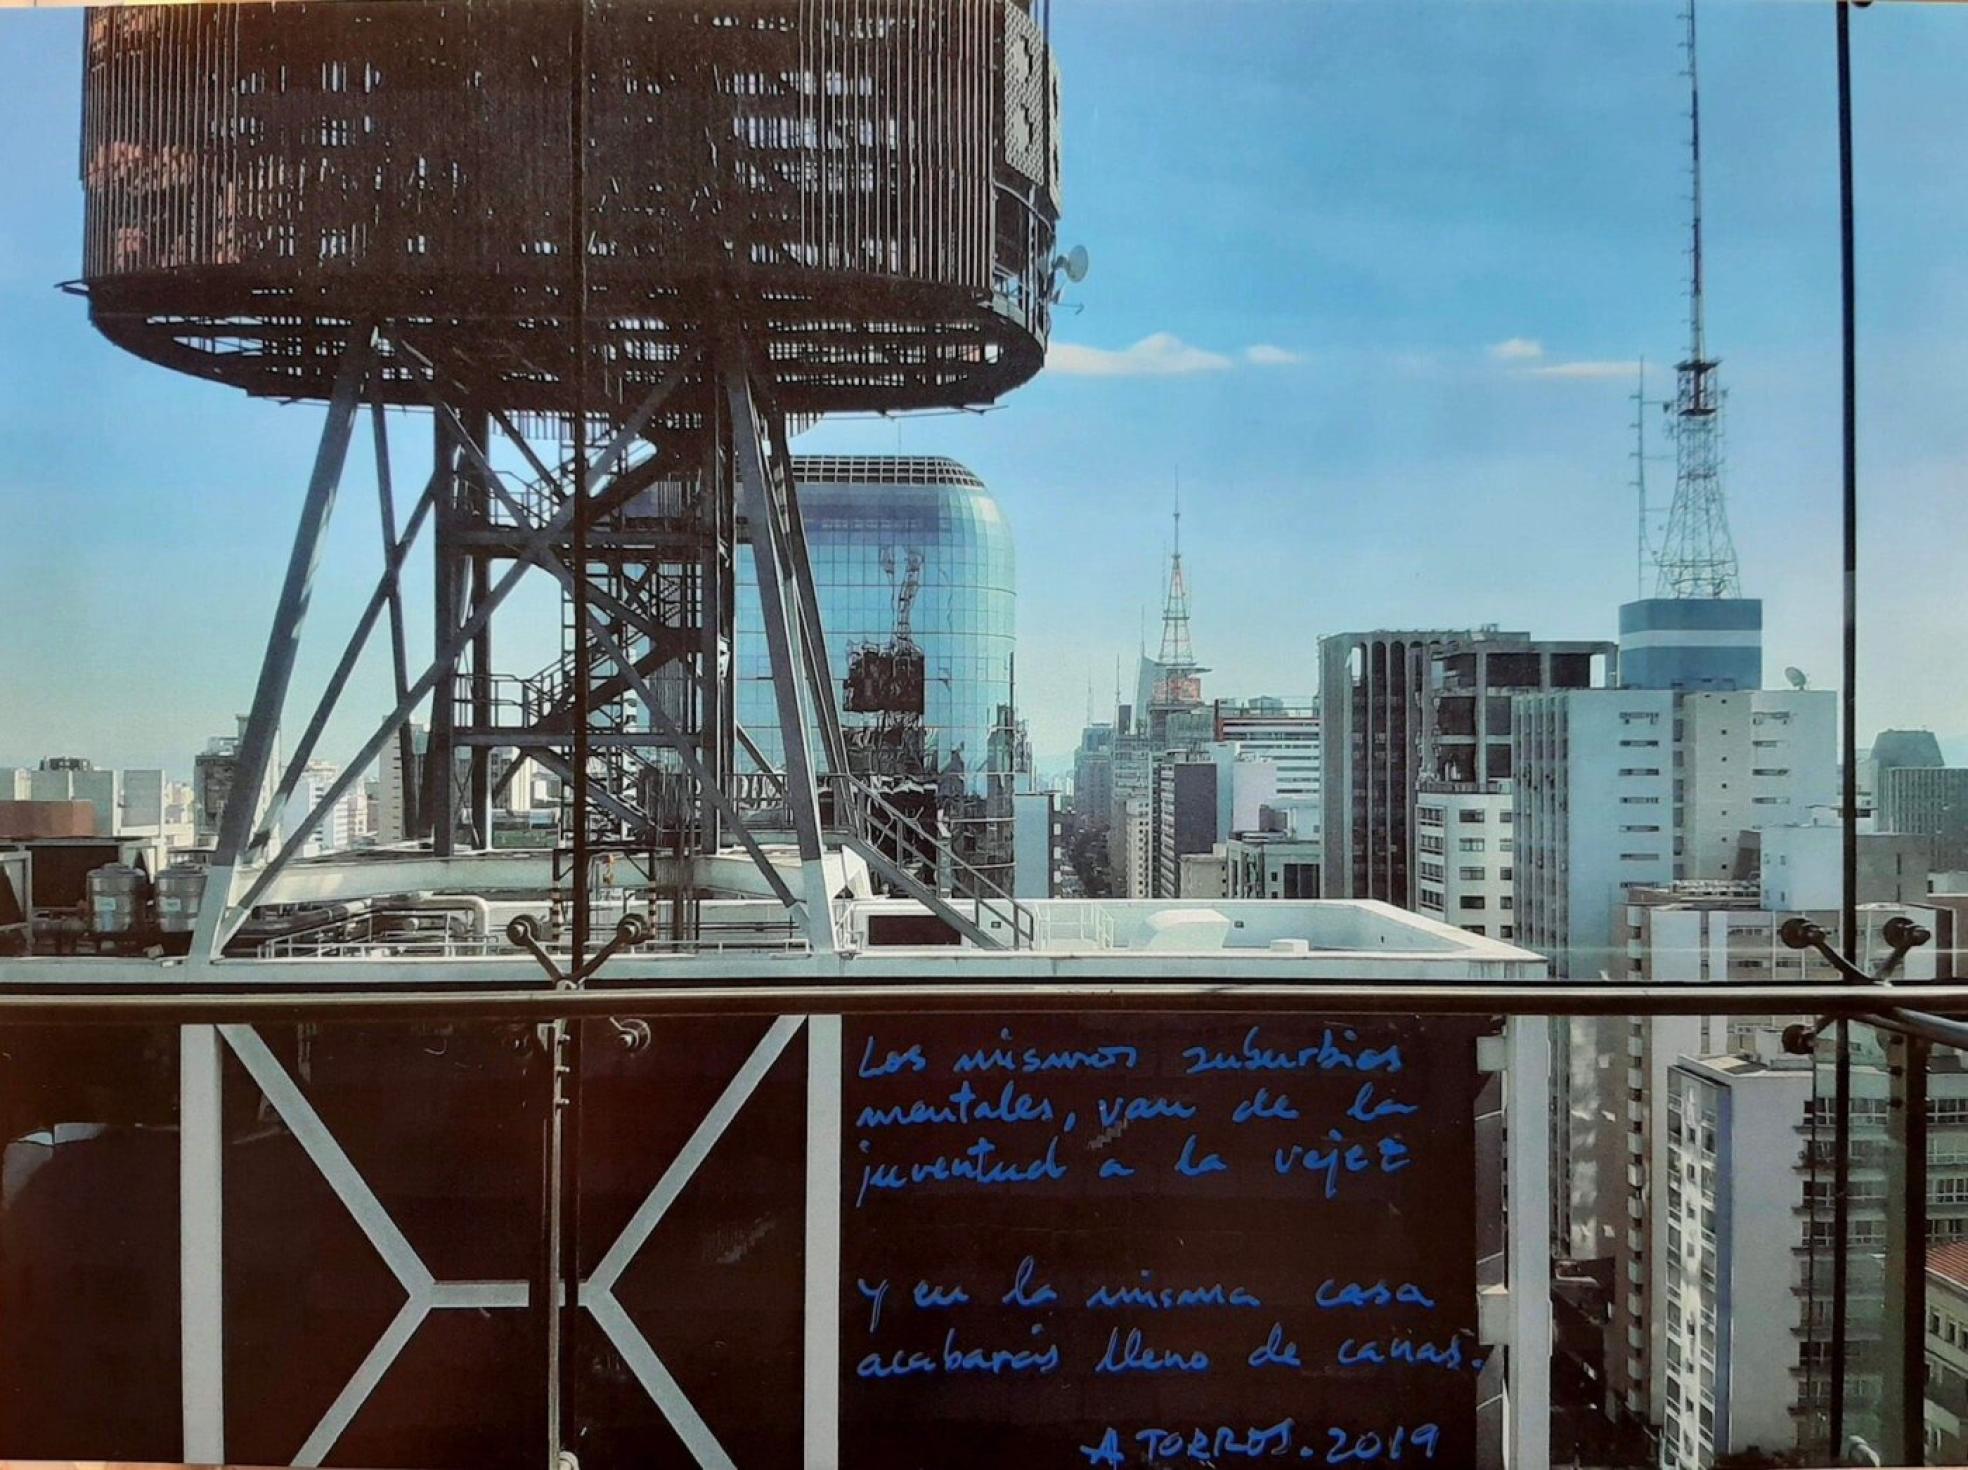 Los mismos suburbios
mentales, van de la
juventud a la vejez
Y en la misma casa
acabarás lleno de canas.
A TORRES. 2019